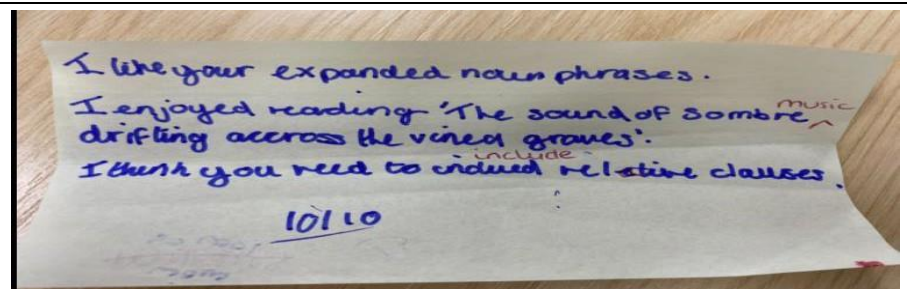 I like your expanded noun phrases.
I enjoyed reading 'The sound of sombre music
drifting accross the vined graves'.
I think you need to indued include relative clauses.
10/10